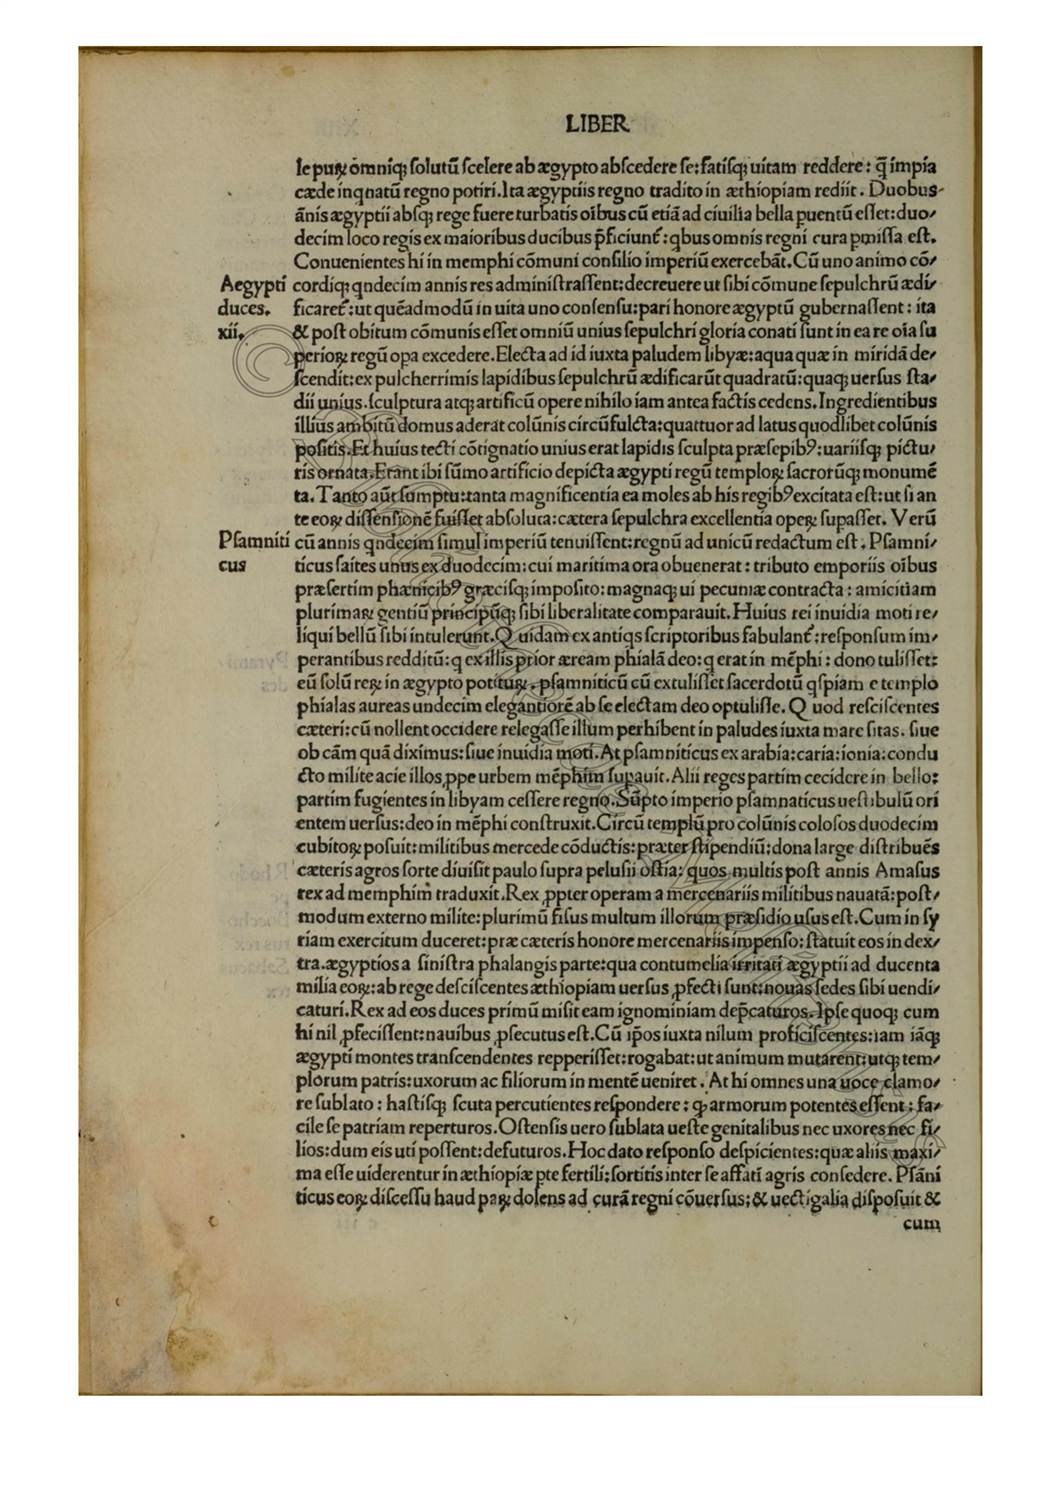 LIBER
le puꝝ omniq; ſolutū ſcelere ab ægypto abſcedere ſe: fatiſq; uitam reddere: q̄ impia
cæde inqnatū regno potiri. Ita ægyptiis regno tradito in æthiopiam rediit. Duobus
ānis ægyptii abſq; rege fuere turbatis oībus cū etiā ad ciuilia bella puentū eſſet: duo/
decim loco regis ex maioribus ducibus p̄ficiunt̄: qbus omnis regni cura pmiſſa eſt.
Conuenientes hi in memphi cōmuni conſilio imperiū exercebāt. Cū uno animo cō/
Aegypti
duces.
xii.
cordiq; qndecim annis res adminiſtraſſent: decreuere ut ſibi cōmune ſepulchrū ædi/
ficaret̄: ut quēadmodū in uita uno conſenſu: pari honore ægyptū gubernaſſent: ita
& poſt obitum cōmunis eſſet omniū unius ſepulchri gloria conati ſunt in ea re oīa ſu
perioꝝ regū opa excedere. Electa ad id iuxta paludem libyæ: aqua quæ in miridā de/
ſcendit: ex pulcherrimis lapidibus ſepulchrū ædificarūt quadratū: quaq; uerſus ſta/
dii unius. ſculptura atq; artificū opere nihilo iam antea factis cedens. Ingredientibus
illius ambitū domus aderat colūnis circūfulcta: quattuor ad latus quodlibet colūnis
poſitis. Et huius tecti cōtignatio unius erat lapidis ſculpta præſepibꝰ: uariiſq; pictu/
ris ornata. Erant ibi ſūmo artificio depicta ægypti regū temploꝝ ſacrorūq; monumē
ta. Tanto aūt ſumptu: tanta magnificentia ea moles ab his regibꝰ excitata eſt: ut ſi an
te eoꝝ diſſenſionē fuiſſet abſoluta: cætera ſepulchra excellentia opeꝝ ſupaſſet. Verū
Pſamniti
cus
cū annis qndecim ſimul imperiū tenuiſſent: regnū ad unicū redactum eſt. Pſamni/
ticus ſaites unus ex duodecim: cui maritima ora obuenerat: tributo emporiis oībus
præſertim phænicibꝰ græciſq; impoſito: magnaq; ui pecuniæ contracta: amicitiam
plurimaꝝ gentiū principūq; ſibi liberalitate comparauit. Huius rei inuidia moti re/
liqui bellū ſibi intulerunt. Quidam ex antiqs ſcriptoribus fabulant̄: reſponſum im/
perantibus redditū: q ex illis prior æream phialā deo: q erat in mēphi: dono tuliſſet:
eū ſolū reꝝ in ægypto potituꝝ. pſamniticū cū extuliſſet ſacerdotū qſpiam e templo
phialas aureas undecim elegantiorē ab ſe electam deo optuliſſe. Quod reſciſcentes
cæteri: cū nollent occidere relegaſſe illum perhibent in paludes iuxta mare ſitas. ſiue
ob cām quā diximus: ſiue inuidia moti. At pſamniticus ex arabia: caria: ionia: condu
cto milite acie illos ꝓpe urbem mēphim ſupauit. Alii reges partim cecidere in bello:
partim fugientes in libyam ceſſere regno. Sūpto imperio pſamnaticus ueſtibulū ori
entem uerſus: deo in mēphi conſtruxit. Circū templū pro colūnis coloſos duodecim
cubitoꝝ poſuit: militibus mercede cōductis: præter ſtipendiū: dona large diſtribuēs
cæteris agros ſorte diuiſit paulo ſupra peluſii oſtia: quos multis poſt annis Amaſus
rex ad memphim traduxit. Rex ꝓpter operam a mercenariis militibus nauatā: poſt/
modum externo milite: plurimū fiſus multum illorum præſidio uſus eſt. Cum in ſy
riam exercitum duceret: præ cæteris honore mercenariis impenſo: ſtatuit eos in dex/
tra. ægyptios a ſiniſtra phalangis parte: qua contumelia irritati ægyptii ad ducenta
milia eoꝝ: ab rege deſciſcentes æthiopiam uerſus ꝓfecti ſunt: nouas ſedes ſibi uendi/
caturi. Rex ad eos duces primū miſit eam ignominiam dep̄caturos. Ipſe quoq; cum
hi nil ꝓfeciſſent: nauibus ꝓſecutus eſt. Cū ip̄os iuxta nilum proficiſcentes: iam iāq;
ægypti montes tranſcendentes repperiſſet: rogabat: ut animum mutarent: utq; tem/
plorum patris: uxorum ac filiorum in mentē ueniret. At hi omnes una uoce clamo/
re ſublato: haſtiſq; ſcuta percutientes reſpondere: ꝙ armorum potentes eſſent: fa/
cile ſe patriam reperturos. Oſtenſis uero ſublata ueſte genitalibus nec uxores nec fi/
lios: dum eis uti poſſent: defuturos. Hoc dato reſponſo deſpicientes: quæ aliis maxi/
ma eſſe uiderentur in æthiopiæ pte fertili: ſortitis inter ſe affatī agris conſedere. Pſāni
ticus eoꝝ diſceſſu haud paꝝ dolens ad curā regni cōuerſus; & uectigalia diſpoſuit &
cum